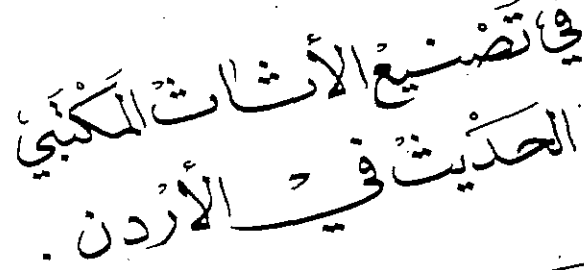 في تصنيع الأثاث المكتبي
الحديث في الأردن .